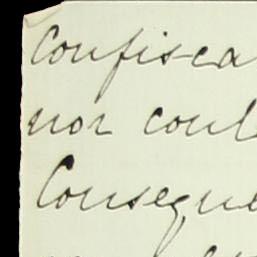 Confisca
nor coul
Conseque